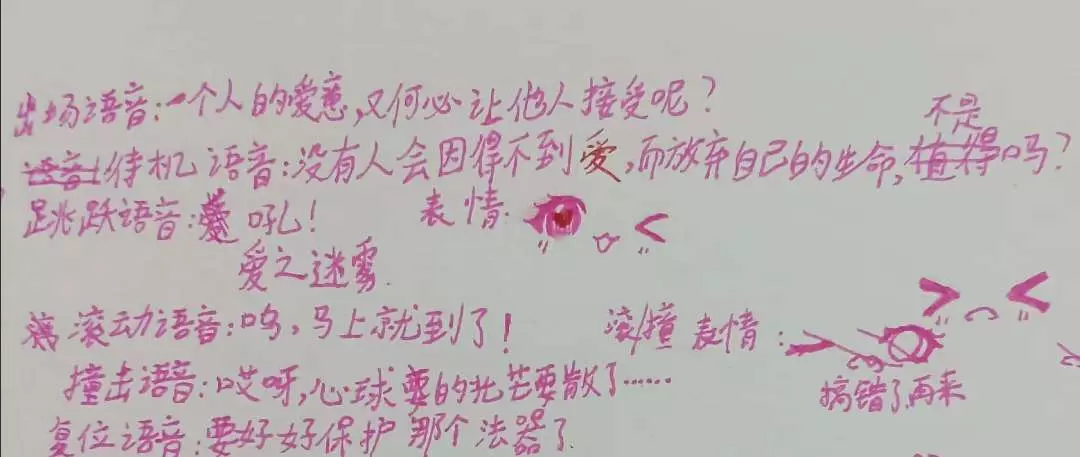 出场语音:一个人的爱意,又何必让他人接受呢?
不是
语音:待机语音:没有人会因得不到爱,而放弃自己的生命,值得吗?
跳跃语音:吼! 表情:
爱之迷雾
滚动语音:呜,马上就到了! 滚撞表情:
撞击语音:哎呀,心球的光芒要散了……
搞错了再来
复位语音:要好好保护那个法器了